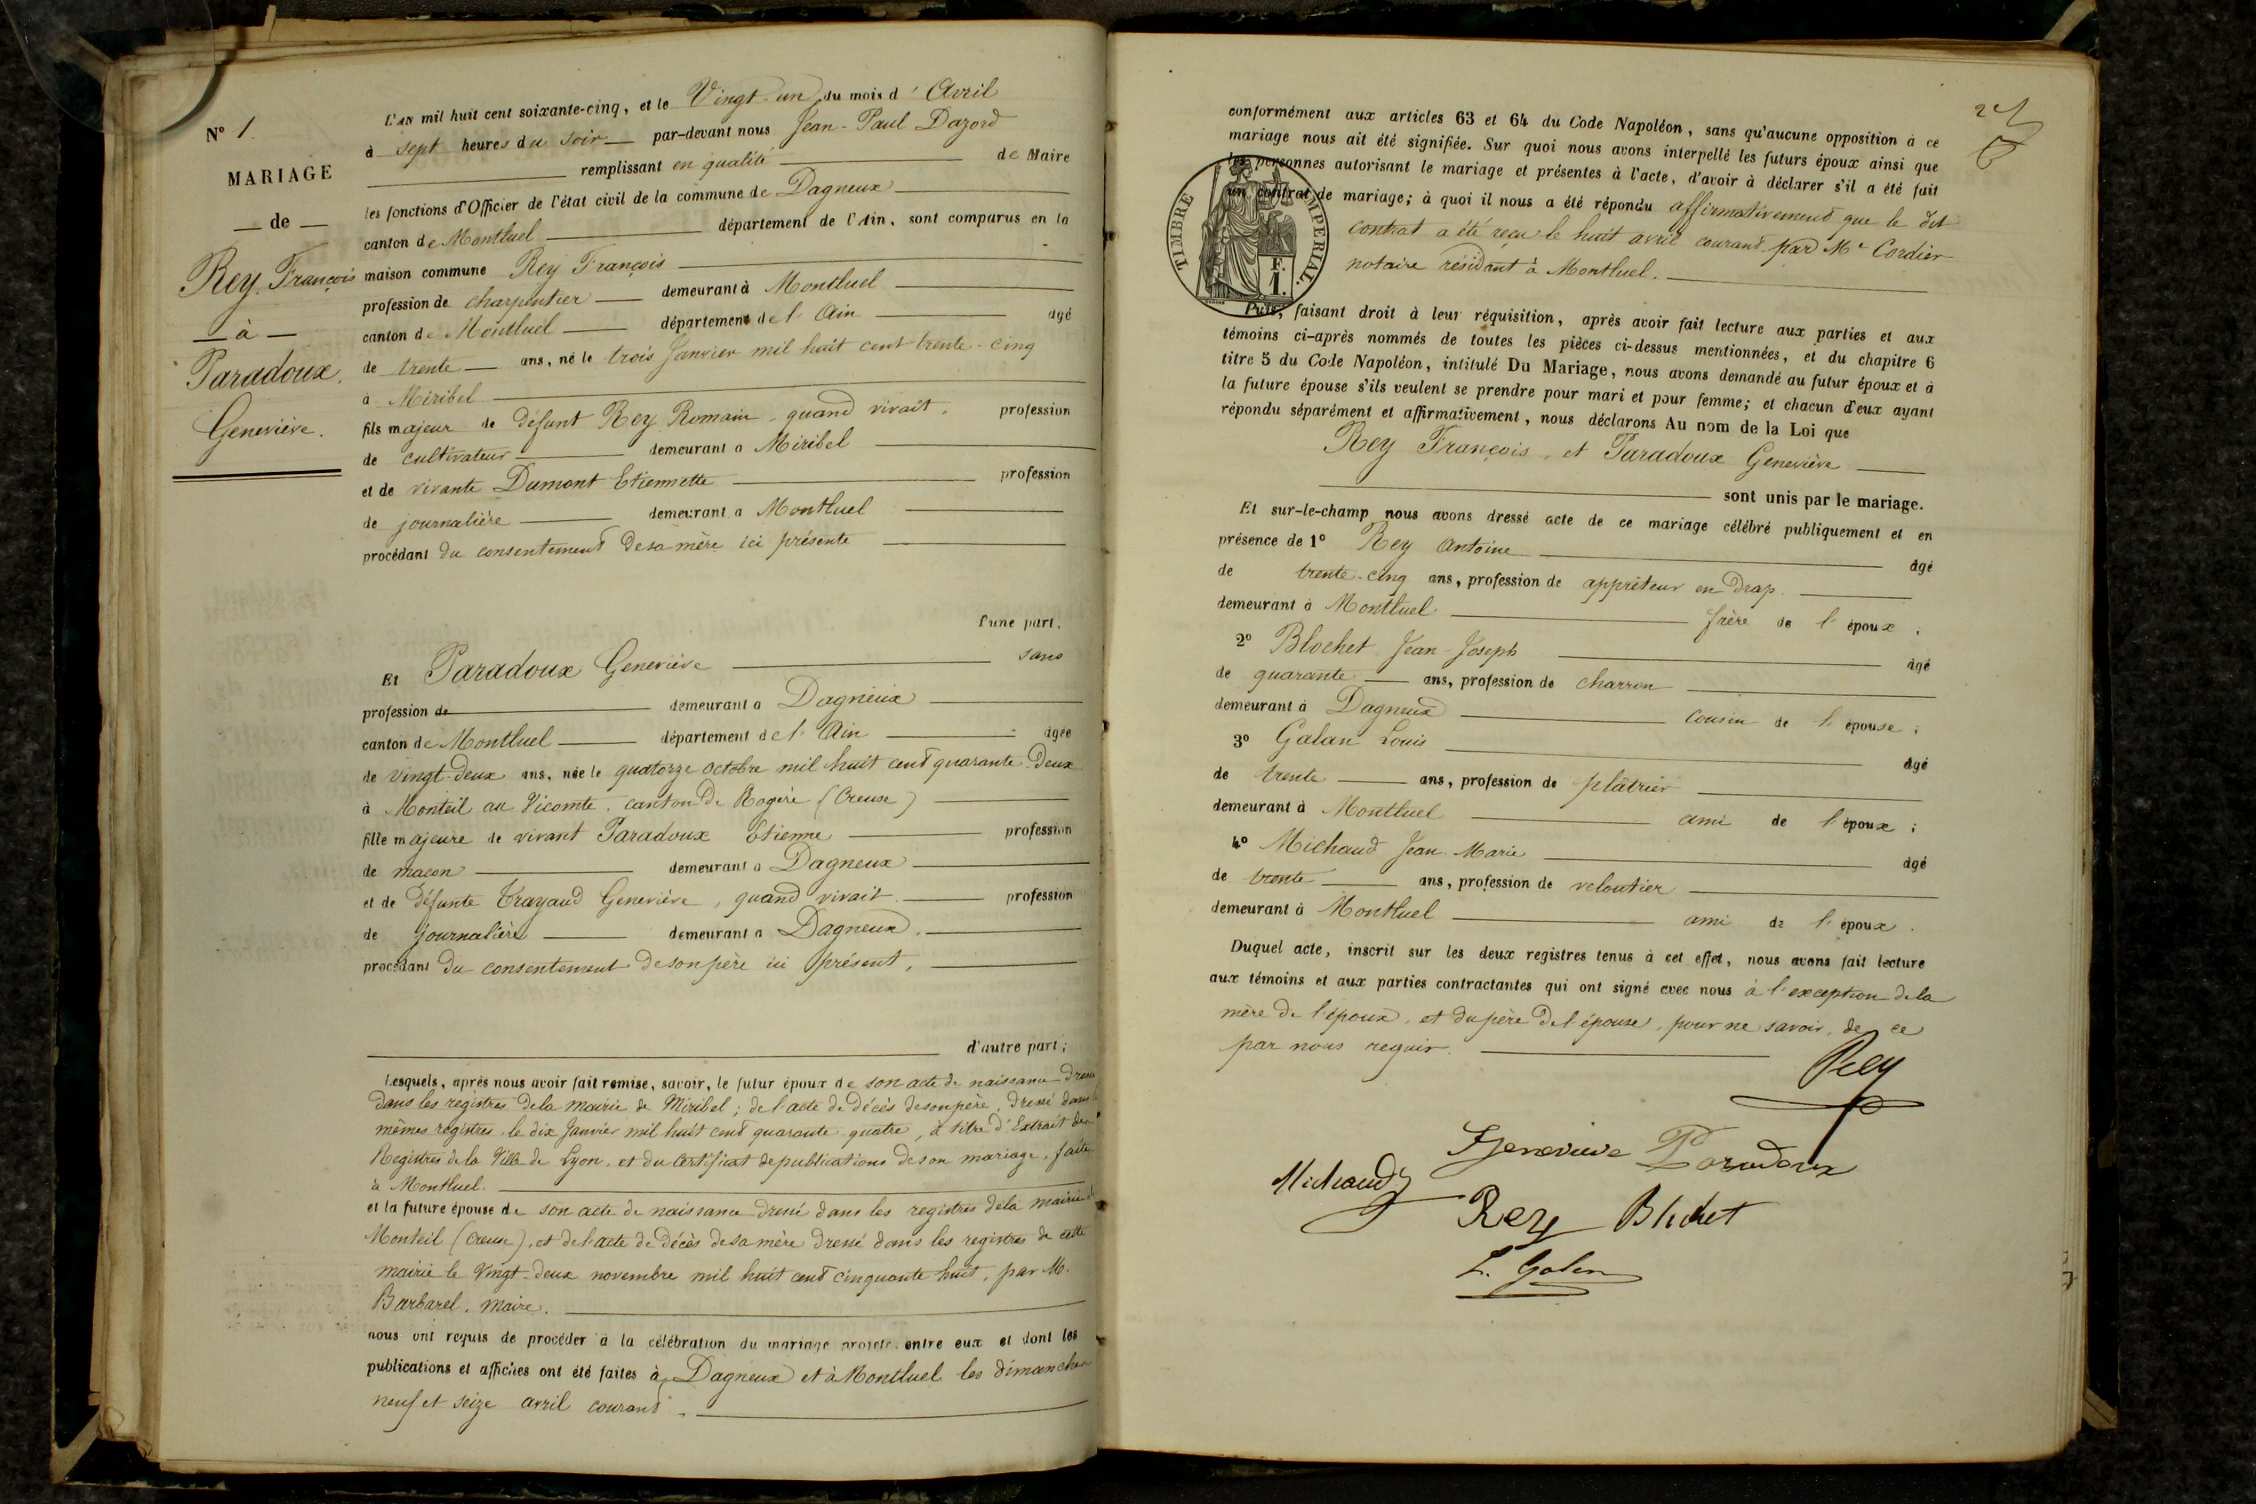 N° 1.
MARIAGE
de
Rey François
à
Paradoux
Geneviève.
L'AN mil huit cent soixante-cinq, et le Vingt-un du mois d'Avril
à sept heures du soir par-devant nous Jean-Paul Dazord
remplissant en qualité de Maire
les fonctions d'Officier de l'état civil de la commune de Dagneux
canton de Montluel département de l'Ain, sont comparus en la
maison commune Rey François
profession de charpentier demeurant à Montluel
canton de Montluel département de l'Ain âgé
de trente ans, né le trois Janvier mil huit cent trente-cinq
à Miribel
fils majeur de défunt Rey Romain, quand vivait, profession
de cultivateur demeurant à Miribel
et de vivante Dumont Etiennette profession
de journalière demeurant à Montluel
procédant du consentement de sa mère ici présente
l'une part.
Et Paradoux Geneviève sans
profession de demeurant à Dagneux
canton de Montluel département de l'Ain âgée
de vingt-deux ans, née le quatorze octobre mil huit cent quarante-deux
à Monteil au Vicomte, canton de Rogère (Creuse)
fille majeure de vivant Paradoux Etienne profession
de maçon demeurant à Dagneux
et de défunte Trayaud Geneviève, quand vivait profession
de journalière demeurant à Dagneux.
procédant du consentement de son père ici présent,
d'autre part;
Lesquels, après nous avoir fait remise, savoir, le futur époux de son acte de naissance dressé
dans les registres de la mairie de Miribel; de l'acte de décès de son père, dressé dans
mêmes registres le dix Janvier mil huit cent quarante quatre, à titre d'Extrait des
Registres de la Ville de Lyon, et du Certificat de publications de son mariage, faite
à Montluel.
et la future épouse de son acte de naissance dressé dans les registres de la mairie
Monteil (Creuse), et de l'acte de décès de sa mère dressé dans les registres de cette
mairie le Vingt-deux novembre mil huit cent cinquante huit, par M.
Barbarel, maire.
nous ont requis de procéder à la célébration du mariage projeté entre eux et dont les
publications et affiches ont été faites à Dagneux et à Montluel les dimanches
neuf et seize avril courant.
conformément aux articles 63 et 64 du Code Napoléon, sans qu'aucune opposition à ce
mariage nous ait été signifiée. Sur quoi nous avons interpellé les futurs époux ainsi que
les personnes autorisant le mariage et présentes à l'acte, d'avoir à déclarer s'il a été fait
un contrat de mariage; à quoi il nous a été répondu affirmativement que le dit
contrat a été reçu le huit avril courant par Me Cordier
notaire résidant à Montluel.
TIMBRE IMPERIAL.
F.
1.
Puis, faisant droit à leur réquisition, après avoir fait lecture aux parties et aux
témoins ci-après nommés de toutes les pièces ci-dessus mentionnées, et du chapitre 6
titre 5 du Code Napoléon, intitulé Du Mariage, nous avons demandé au futur époux et à
la future épouse s'ils veulent se prendre pour mari et pour femme; et chacun d'eux ayant
répondu séparément et affirmativement, nous déclarons Au nom de la Loi que
Rey François, et Paradoux Geneviève
sont unis par le mariage.
Et sur-le-champ nous avons dressé acte de ce mariage célébré publiquement et en
présence de 1° Rey Antoine âgé
de trente-cinq ans, profession de apprêteur en drap.
demeurant à Montluel frère de l'époux;
2° Blochet Jean-Joseph âgé
de quarante ans, profession de charron
demeurant à Dagneux cousin de l'épouse;
3° Galan Louis âgé
de trente ans, profession de plâtrier
demeurant à Montluel ami de l'époux;
4° Michaud Jean-Marie âgé
de trente ans, profession de veloutier
demeurant à Montluel ami de l'époux.
Duquel acte, inscrit sur les deux registres tenus à cet effet, nous avons fait lecture
aux témoins et aux parties contractantes qui ont signé avec nous à l'exception de la
mère de l'époux, et du père de l'épouse, pour ne savoir, de ce
par nous requis.
Rey
Genevieve Paradoux
Michaud
Rey Blochet
L. Galan